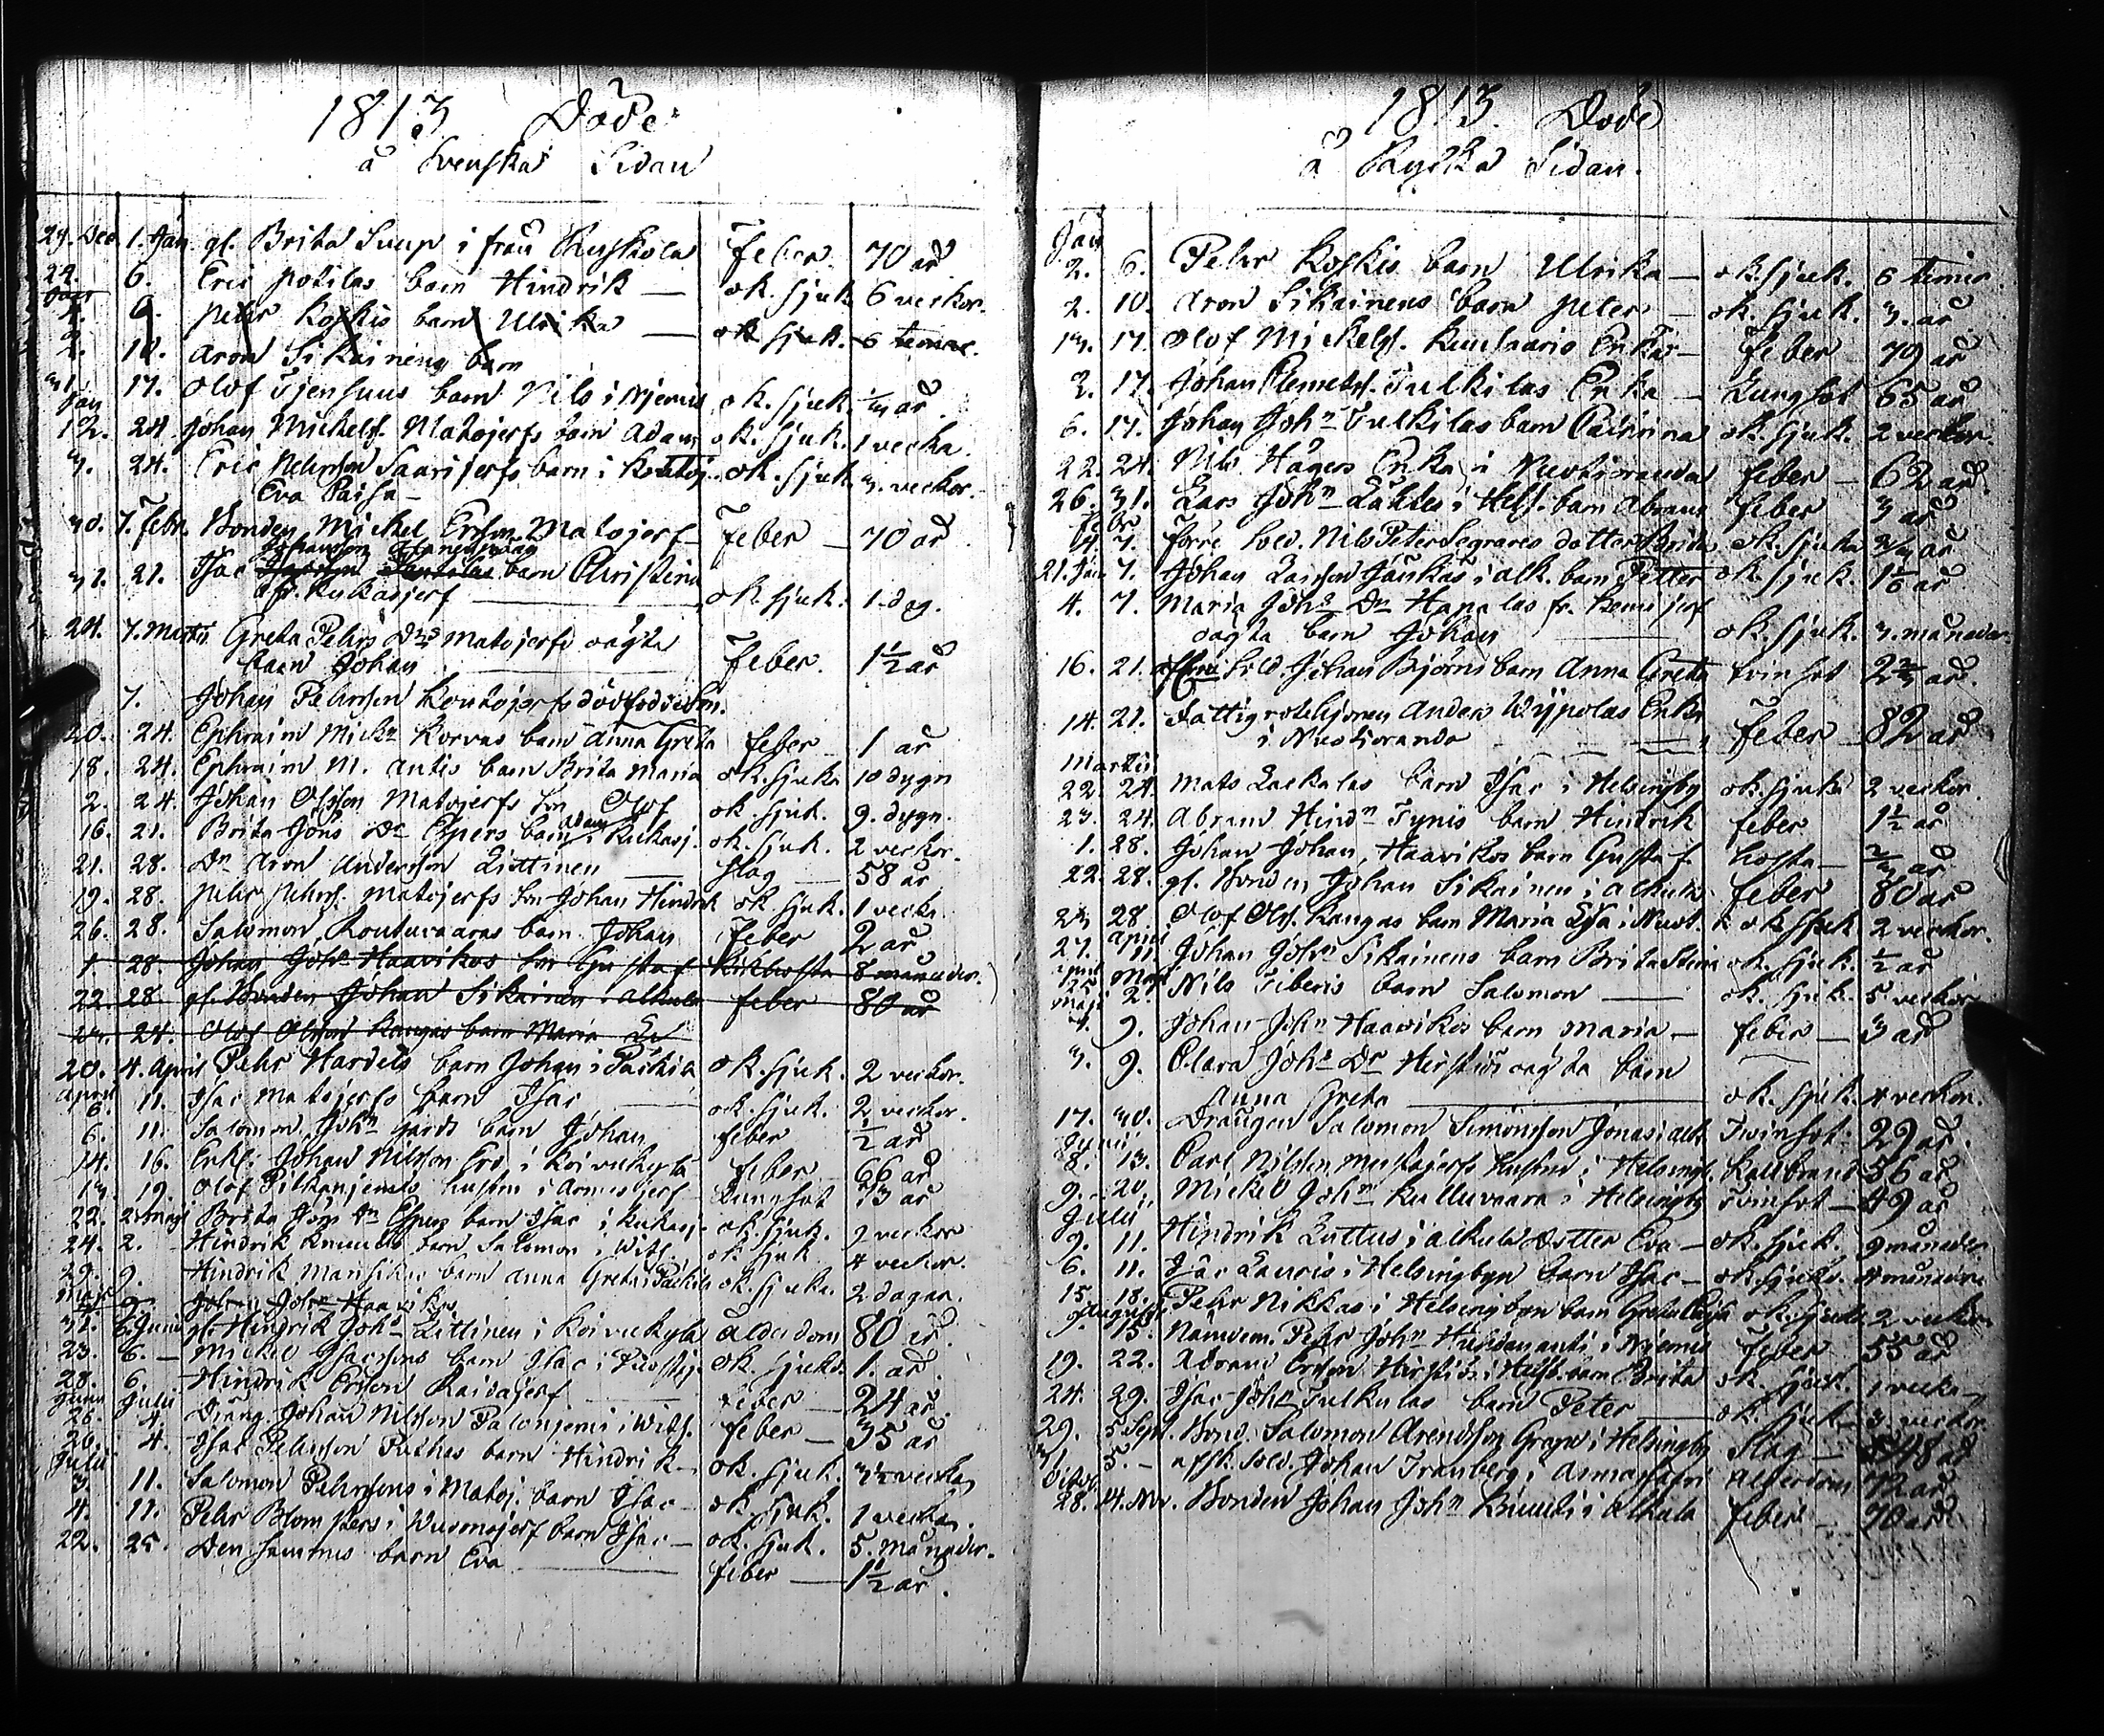 1813 Döde
å Svenska Sidan
24. Dec. 1. Jan. gl. Brita Suup i från Ruskola feber 70 år
22. 6. Eric potilas barn Hindrik — ok. sjuk 6 veckor.
Jan 2. 6. Pehr Koskis barn Ulrika — ok sjuk. 6 timar.
2. 10. Aron Sikainens barn
31. 17. Olof barn Nils i Niemis ok. sjuk 1/4 år.
Jan 12. 24 Johan Michels. Matojerfs barn Adam ok. sjuk. 1 vecka.
3. 24. Eric Pehrsson Saarijerfs barn i ok. sjuk 3. veckor.
Eva Caisa —
30. 7. Febr. Bonden Mickel Ersson Matojerf — feber — 70 år
Johansson
31. 21. Isac barn Christina
fr. Kukasjerf — ok. sjuk. 1. dag.
24. 7. Martii Greta Pehrs Dr Matojerfs oägta
barn Johan feber. 1½ år
7. Johan Pehrsson Koutojerfs dödfödde Son.
20. 24. Ephraim Mickn Korvas barn Anna Greta feber 1 år
18. 24. Ephraim M. Antis barn Brita Maria ok. sjuka 10 dygn
2. 24. Johan Olsson Matojerfs Son Olof ok sjuk. 9. dygn.
16. 21. Brita Jöns Dr Espers barn Adam i Kukasj. ok. sjuk. 2 veckor.
21. 28. Dn Aron Andersson Littinen — slag — 58 år
19. 28. Pehr Pehrs. Matojerfs Son Johan Hindrik ok sjuk. 1 vecka
26. 28. Salomon Koutuvaaras barn Johan feber 2 år
1 28. Johan Johs Haavikos Son Gustaf Kikhosta 8 månader.
22. 28. gl. Bonden Johan Sikainen i Alkula feber 80 år
24. Olof Olsson Kangas barn Maria
20. 4. April Pehr Hardels barn Johan i Päckilä ok. sjuk. 2 veckor.
April 6. 11. Isac Matojerfs barn Isac — ok. sjuk. 2 veckor.
6. 11. Salomon John Gards barn Johan feber ½ år
14. 16. Enkl. Johan Nilsson Erd i Koivukylä feber 66 år
13. 19. Olof hustru i Armasjerf — Lungsot 73 år
22. 2 Maji Brita Jöns Dr Espers barn Isac i Kukasj. ok. sjuk. 9 veckor
24. 2. Hindrik Knuutis barn Salomon i Wits. ok sjuk 4 veckor.
29. 9. Hindrik Mansikas barn Anna Greta i Päckilä ok. sjuka. 2 dagar.
Maji 9. Johan John Haavikos
31. 6 Junii gl. Hindrik Johs Littinen i Koivukylä ålderdom 80 år.
23. 6. — Mickel Isacssons barn Isac i ok. sjukd. 1. år.
28. 6. Hindrik Ersson Raidajerf — feber — 24 år.
Junii Julii
26. 4. Dräng Johan Nilsson Palonjemi i Wits. feber — 35 år
20. 4. Isac Pehrsson Puikas barn Hindrik — ok. sjuk. 3½ vecka
Julii 3. 11. Salomon Pehrssons i Matoj. barn Isac — ok. sjuk. 1 vecka.
4. 11. Pehr Blompers i Wuomajerf barn Isac — ok. sjuk. 5. månader.
22. 25. Den sammes barn Eva — feber — 1½ år.
1813. Döde
å Ryska Sidan.
Jan 2. 6. Pehr Koskis barn Ulrika — ok sjuk. 6 timar.
2. 10. Aron Sikainens barn Peter — ok. sjuk. 3. år
13. 17. Olof Michels. Kuulaaris Enka — feber — 79 år
2. 17. Johan Clemets. Tulkilas Enka — Lungsot 65 år
6. 17. Johan John Tulkilas barn Cathrina ok. sjuk. 2 veckor.
22. 24. Nils Hägers Enka i Nuotioranda feber — 62 år.
26. 31. Lars John Lahtis i Hels. barn Abram feber 3 år
Febr 4. 7. Förre Sold. Nils Peter Segrares dotter Brita ok. sjuka ¾ år
21. Jan 7. Johan Larsson Jänkäs i Alk. barn Petter ok. sjuk. 1⅙ år
4. 7. Maria Johs Dr Hapalas fr. Kemijerf
oägta barn Johan — ok. sjuk. 3. månader
16. 21. Sold. Johan Björns barn Anna Greta tvinsot 2¾ år.
14. 21. Fattig rotehjonen Anders Wÿpolas Enka
i Nuotioranda — feber — 82 år
Martii
22. 24. Mats Lackalas barn Isac i Helsingby ok. sjuka 2 veckor
23. 24. Abram Hindn Tynis barn Hindrik feber 1½ år
1. 28. Johan Johan, Haavikos barn Gustaf hosta — ¾ år
22. 28. gl. Bonden Johan Sikainen i Alkula feber 80 år
23 28. Olof Ols. Kangas barn Maria Lisa i Nuot. ok sjuk 2 veckor.
27. April 11 Johan John Sikainens barn Brita Stina ok. sjuk. ½ år
April 25 Maji 2. Nils Fiberis barn Salomon — ok. sjuk. 5 veckor
Maji 4. 9. Johan John Haavikos barn Maria — feber — 3 år
3. 9. Clara Johs Dr Hirstiös oägta barn
Anna Greta — ok. sjuk. 4 veckor.
17. 30. Drängen Salomon Simonsson Jonas i Alk. Tvinsot: 29 år.
Junii 8. 13. Carl Nilsson Mustajerfs hustru i Helsingb. kallbrand 56 år
9. 20. Mickel John Kulluvaara i Helsingby tvinsot — 49 år
Julii 9. 11. Hindrik Luttus i Alkula dotter Eva — ok. sjuk. 9 månader
6. 11. Isac Lauris i Helsingbyn barn Isac — ok. sjukd. 4 månader
15. 18. Pehr Nikkas i Helsingbyn barn Greta Caisa ok. sjuka 2 veckor
Augusti 9. 15. Nämdem. Pehr John i Niemis feber 55 år
19. 22. Abram Ersson Hirstiös i Helsb. barn Brita ok. sjuk. 1 vecka
24. 29. Isac Johs Tulkilas barn Peter — ok. sjuk — 3 veckor
29. 5 Sept. Bond. Salomon Arendsson Grape i Helsingby Slag — 48 år
31. 5. — afsk. Sold. Johan Tranberg i Armassaari Ålderdom 72 år.
Octob. 28. 14. Nov. Bonden Johan John Knuuti i Alkula feber — 70 år.